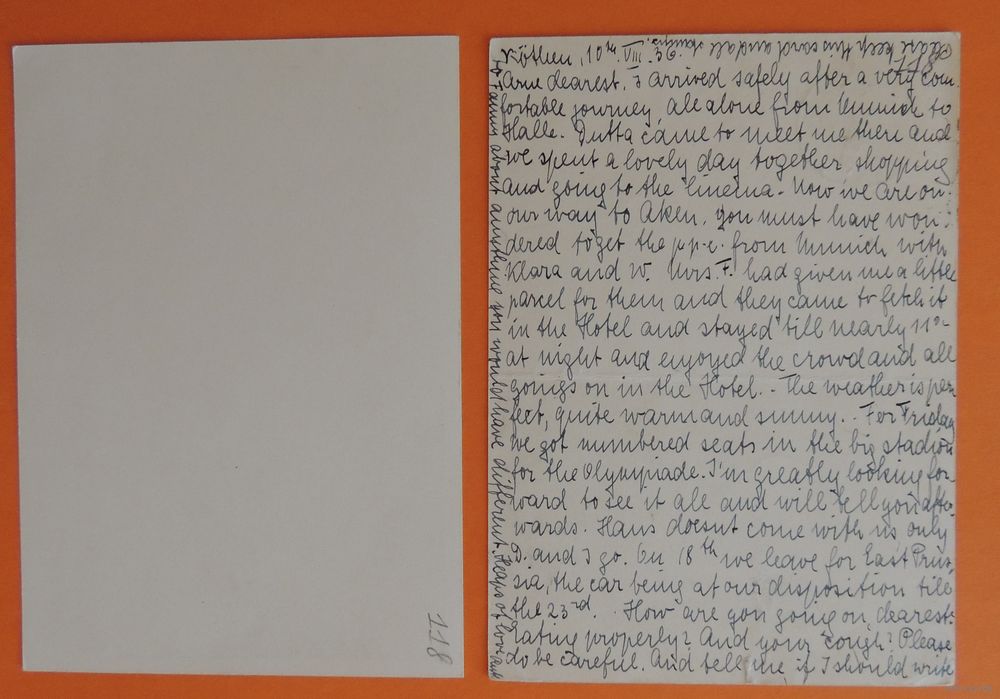 Köthen, 10th VIII. 36.
Arne dearest, I arrived safely after a very com
fortable journey, all alone from Munich to
Halle. Dutta came to meet me there and
we spent a lovely day together shopping
and going to the Cinema. Now we are on
our way to Aken. you must have won-
dered to get the p.p-c. from Munich with
Klara and W. Mrs. F. had given me a little
parcel for them and they came to fetch it
in the Hotel and stayed till nearly 11°-
at night and enjoyed the crowd and all
goings on in the Hotel. - The weather is per
fect, quite warm and sunny. - For Friday
we got numbered seats in the big stadion
for the Olympiade. I'm greatly looking for-
ward to see it all and will tell you after-
wards. Hans doesnt come with us, only
D. and I go. On 18th we leave for East Prus-
sia, the car being at our disposition till
the 23rd. - How are you going on, dearest.
Eating properly? And your cough? Please
do be careful. And tell me if I should write
to Fanny about anything you would have different. Heaps of love and
please keep this card and all stamps.
118